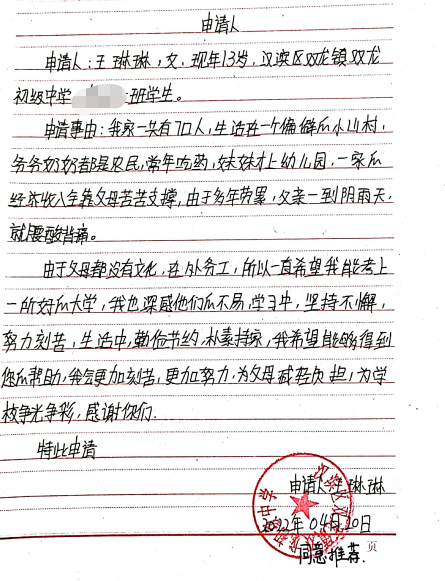 申请人
申请人:王琳琳,女,现年13岁,汉滨区双龙镇双龙
初级中学 班学生。
申请事由:我家一共有7口人,生活在一个偏僻的小山村,
爷爷奶奶都是农民,常年吃药,妹妹才上幼儿园,一家的
经济收入全靠父母苦苦支撑,由于多年劳累,父亲一到阴雨天,
就腰酸背痛。
由于父母都没有文化,在外务工,所以一直希望我能考上
一所好的大学,我也深感他们的不易,学习中,坚持不懈,
努力刻苦,生活中,勤俭节约,朴素持家,我希望能够得到
您的帮助,我会更加刻苦,更加努力,为父母减轻负担,为学
校争光争彩,感谢你们.
特此申请
申请人:王琳琳
2022年04月20日
同意推荐.
页